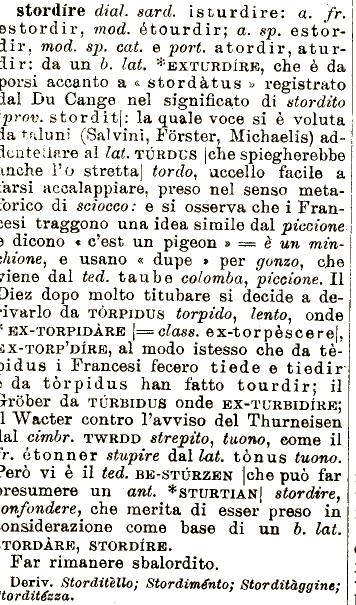 stordíre dial. sard. isturdire: a. fr.
estordir, mod. étourdir; a. sp. estor-
dir, mod. sp. cat. e port. atordir, atur-
dir: da un b. lat. *EXTURDÍRE, che è da
porsi accanto a « stordàtus » registrato
dal Du Cange nel significato di stordito
[prov. stordit]: la quale voce si è voluta
da taluni (Salvini, Förster, Michaelis) ad-
dentellare al lat. TÚRDUS [che spiegherebbe
anche l'o stretta] tordo, uccello facile a
farsi accalappiare, preso nel senso meta-
forico di sciocco: e si osserva che i Fran-
cesi traggono una idea simile dal piccione
e dicono « c'est un pigeon » = è un min-
chione, e usano « dupe » per gonzo, che
viene dal ted. taube colomba, piccione. Il
Diez dopo molto titubare si decide a de-
rivarlo da TÒRPIDUS torpido, lento, onde
*EX-TORPIDÀRE [= class. ex-torpèscere],
EX-TORP'DÍRE, al modo istesso che da tè-
pidus i Francesi fecero tiede e tiedir
e da tòrpidus han fatto tourdir; il
Gröber da TÚRBIDUS onde EX-TURBIDÍRE;
il Wacter contro l'avviso del Thurneisen
dal cimbr. TWRDD strepito, tuono, come il
fr. étonner stupire dal lat. tònus tuono.
Però vi è il ted. BE-STÚRZEN [che può far
presumere un ant. *STURTIAN] stordire,
confondere, che merita di esser preso in
considerazione come base di un b. lat.
STORDÀRE, STORDÍRE.
Far rimanere sbalordito.
Deriv. Storditèllo; Stordiménto; Storditàggine;
Storditézza.